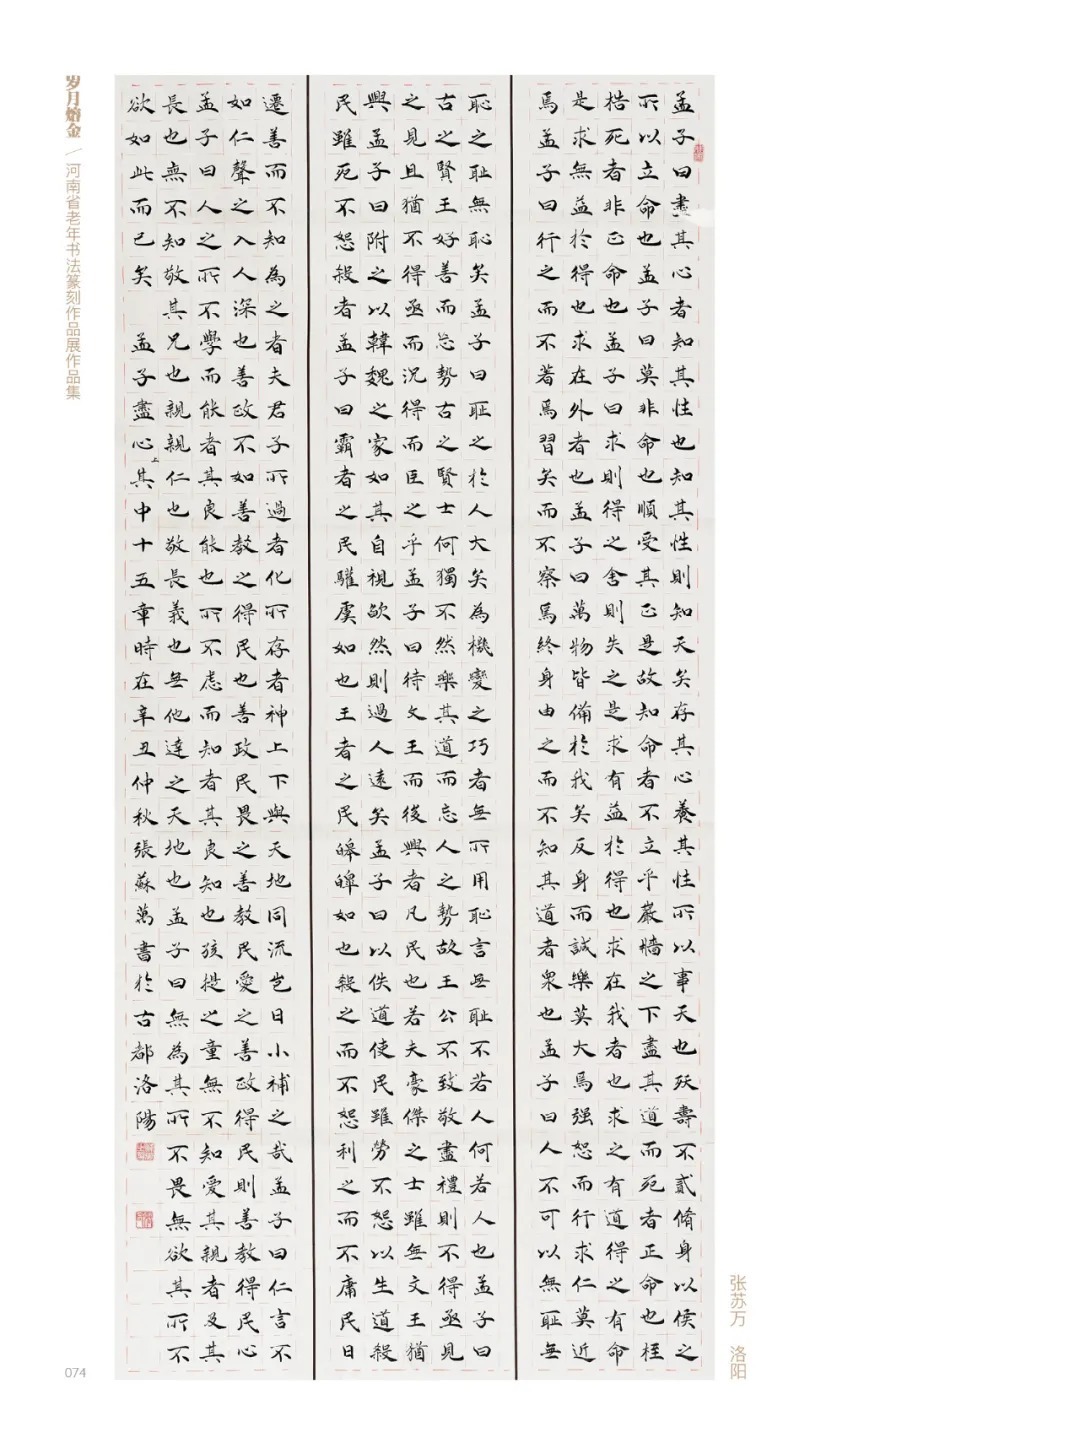 岁月熔金 \ 河南省老年书法篆刻作品展作品集
孟子曰盡其心者知其性也知其性則知天矣存其心養其性所以事天也殀壽不貳脩身以俟之
所以立命也孟子曰莫非命也順受其正是故知命者不立乎巖牆之下盡其道而死者正命也桎
梏死者非正命也孟子曰求則得之舍則失之是求有益於得也求在我者也求之有道得之有命
是求無益於得也求在外者也孟子曰萬物皆備於我矣反身而誠樂莫大焉强恕而行求仁莫近
焉孟子曰行之而不著焉習矣而不察焉終身由之而不知其道者衆也孟子曰人不可以無恥無
恥之恥無恥矣孟子曰恥之於人大矣為機變之巧者無所用恥言無恥不若人何若人也孟子曰
古之賢王好善而忘勢古之賢士何獨不然樂其道而忘人之勢故王公不致敬盡禮則不得亟見
之見且猶不得亟而況得而臣之乎孟子曰待文王而後興者凡民也若夫豪傑之士雖無文王猶
興孟子曰附之以韓魏之家如其自視欿然則過人遠矣孟子曰以佚道使民雖勞不怨以生道殺
民雖死不怨殺者孟子曰霸者之民驩虞如也王者之民皞皞如也殺之而不怨利之而不庸民日
遷善而不知為之者夫君子所過者化所存者神上下與天地同流豈曰小補之哉孟子曰仁言不
如仁聲之入人深也善政不如善教之得民也善政民畏之善教民愛之善政得民則善教得民心
孟子曰人之所不學而能者其良能也所不慮而知者其良知也孩提之童無不知愛其親者及其
長也無不知敬其兄也親親仁也敬長義也無他達之天地也孟子曰無為其所不畏無欲其所不
欲如此而已矣 孟子盡心上其中十五章時在辛丑仲秋張蘇萬書於古都洛陽
张苏万 洛阳
074